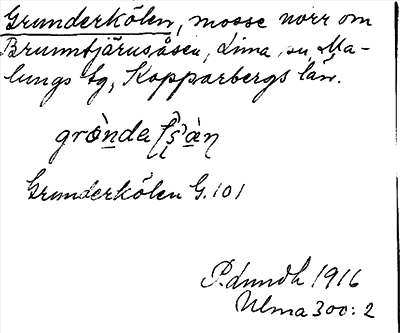 Grunderkölen, mosse norr om
Brunntjärnsåsen, Lima sn, Ma-
lungs tg, Kopparbergs län.
Grunderkölen G. 101
P. Lundh 1916
Ulma 300: 2